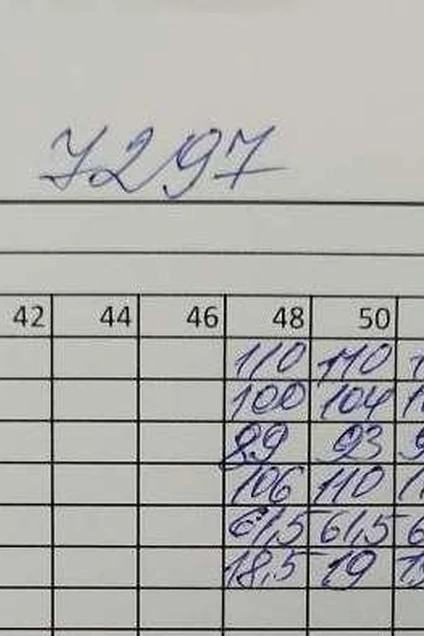 У297
42 44 46 48 50
110 110
100 104
89 93
106 110
61,5 61,5
18,5 19